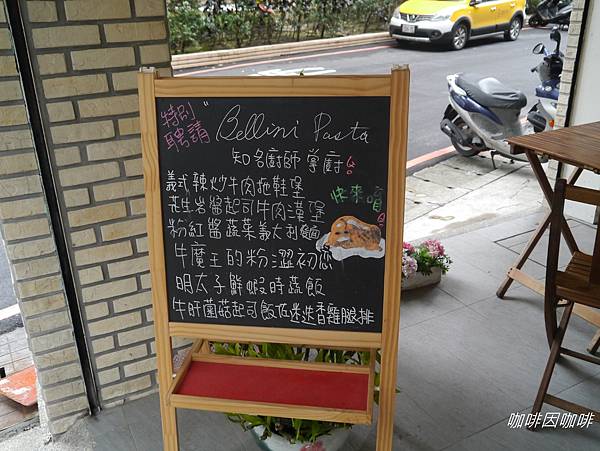 特別
聘請
Bellini Pasta
知名廚師 掌廚
義式辣炒牛肉拖鞋堡
快來唷
花生岩醬起司牛肉漢堡
粉紅醬蔬菜義大利麵
牛魔王的粉澀初戀
明太子鮮蝦時蔬飯
牛肝菌菇起司飯佐迷迭香雞腿排
咖啡因咖啡